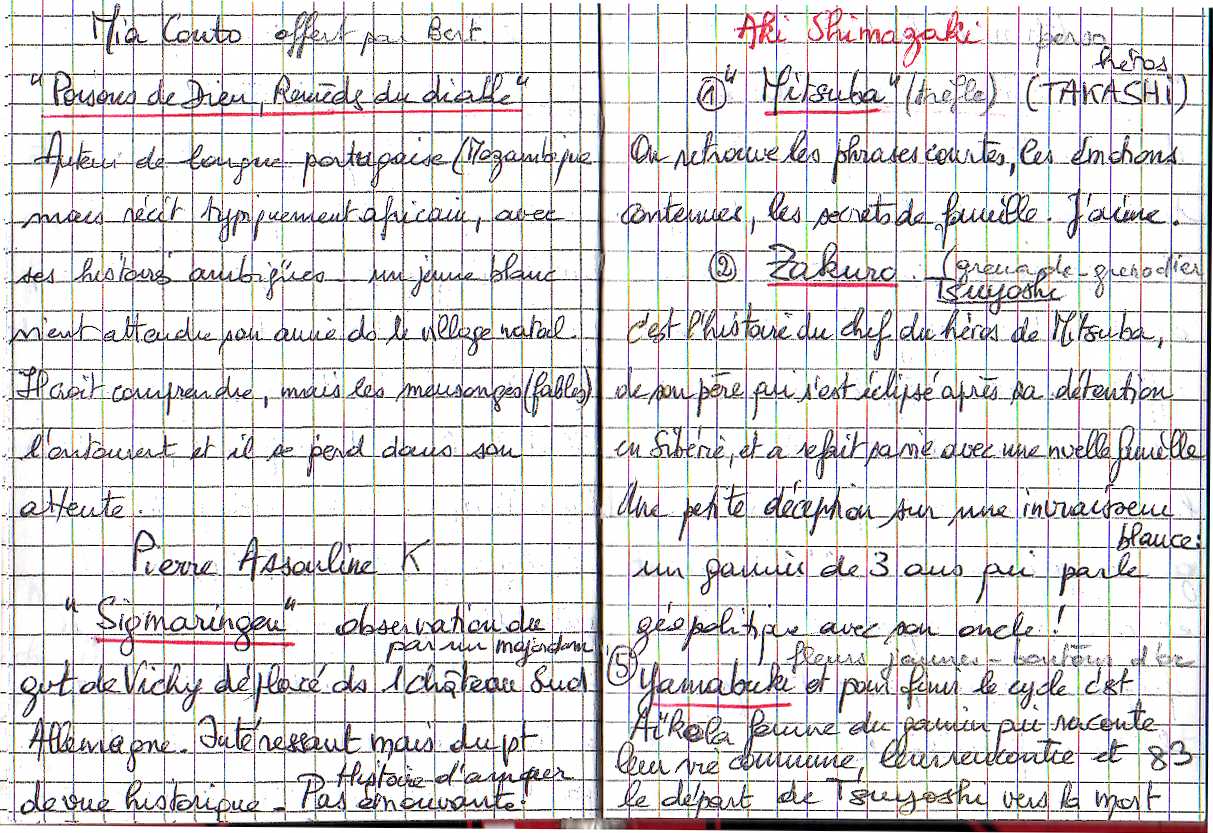 Mia Couto offert par Bert
"Poisons de Dieu, Remèds du diable"
Auteur de langue portugaise (Mozambique
mais récit typiquement africain, avec
ses histoires ambigües un jeune blanc
vient attendre son amie ds le village natal.
Il croit comprendre, mais les mensonges (fables)
l'entourent et il se perd dans son
attente.
Pierre Assouline K
"Sigmaringen" observation du
par un majordom
gvt de Vichy déplacé ds 1 château Sud
Allemagne. Intéressant mais du pt
de vue historique - Pas émouvante.
Histoire d'amour
Aki Shimazaki perso
héros
① "Mitsuba" (trèfle) (TAKASHI)
On retrouve les phrases courtes, les émotions
contenues, les secrets de famille. J'aime.
② Zakuro. (grenade-grenadier
Tsuyoshi
c'est l'histoire du chef du héros de Mitsuba,
de son père qui s'est éclipsé après sa détention
en Sibérie, et a refait sa vie avec une nvelle famille
Une petite déception sur une invraissem
blance:
un gamin de 3 ans qui parle
géopolitique avec son oncle!
fleurs jaunes - boutons d'or
⑤ Yamabuki et pour finir le cycle c'est
Aïko la femme du gamin qui raconte
leur vie commune, leur rencontre et 83
le départ de Tsuyoshi vers la mort